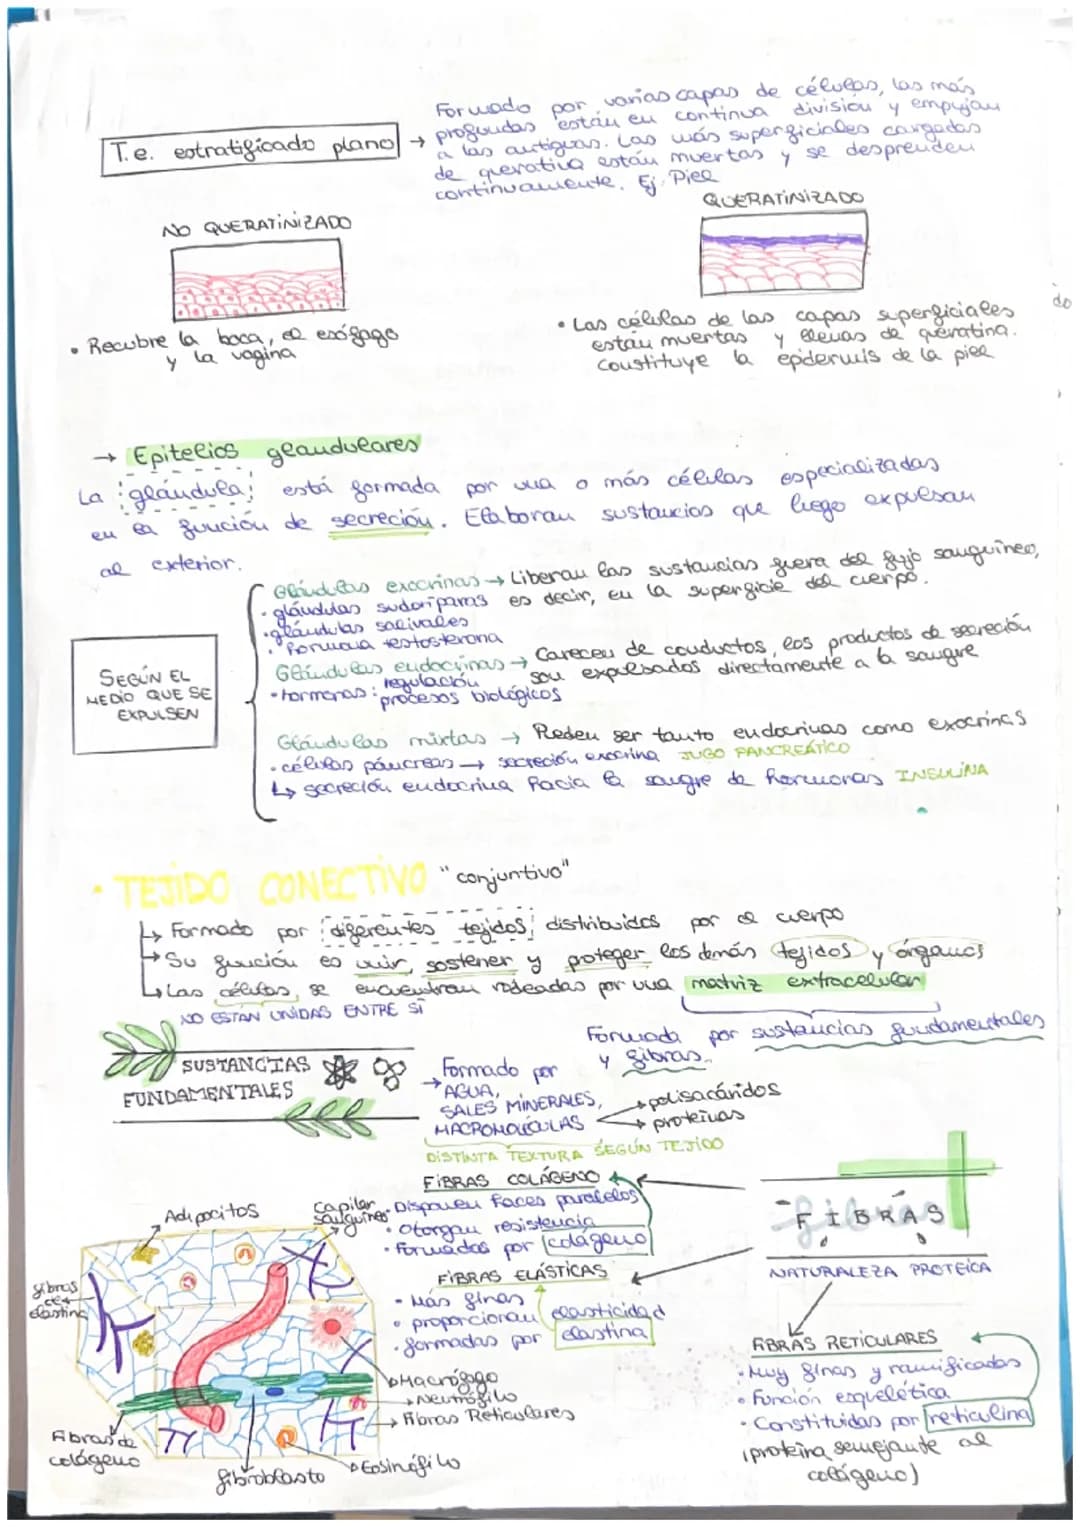 Formado por varias capas de células, las más
profundas están en continua división y empujan
a las antiguas. Las más superficiales cargadas
de queratina están muertas y se desprenden
continuamente. Ej. Piel
T.e. estratificado plano →
NO QUERATINIZADO
QUERATINIZADO
• Recubre la boca, el esófago
y la vagina
• Las células de las capas superficiales
están muertas y llenas de queratina.
Constituye la epidermis de la piel
do
→ Epitelios glandulares
La glándula está formada por una o más células especializadas
en la función de secreción. Elaboran sustancias que luego expulsan
al exterior.
SEGÚN EL
MEDIO QUE SE
EXPULSEN
Glándulas exocrinas → Liberan las sustancias fuera del flujo sanguíneo,
es decir, en la superficie del cuerpo.
• glándulas sudoríparas
• glándulas salivales
• testosterona
Glándulas endocrinas → Carecen de conductos, los productos de secreción
son expulsados directamente a la sangre
• hormonas: regulación
procesos biológicos
Glándulas mixtas → Pueden ser tanto endocrinas como exocrinas
• células páncreas → secreción exocrina JUGO PANCREÁTICO
↳ secreción endocrina hacia la sangre de hormonas INSULINA
• TEJIDO CONECTIVO "conjuntivo"
↳ Formado por diferentes tejidos distribuidos por el cuerpo
↳ Su función es unir, sostener y proteger los demás tejidos y órganos
↳ Las células se encuentran rodeadas por una matriz extracelular
NO ESTÁN UNIDAS ENTRE SÍ
Formada por sustancias fundamentales
y fibras
SUSTANCIAS
FUNDAMENTALES
→ Formado por
AGUA,
SALES MINERALES,
MACROMOLÉCULAS
→ polisacáridos
→ proteínas
DISTINTA TEXTURA SEGÚN TEJIDO
FIBRAS COLÁGENO
• Disponen haces paralelos
• Otorgan resistencia
• Formadas por colágeno
FIBRAS
NATURALEZA PROTEICA
FIBRAS ELÁSTICAS
• Más finas
• proporcionan elasticidad
• formadas por elastina
FIBRAS RETICULARES
• Muy finas y ramificadas
• Función esquelética
• Constituidas por reticulina
(proteína semejante al
colágeno)
Adipocitos
Capilar
sanguíneo
fibras
de
elastina
Macrófago
Neutrófilo
Fibras Reticulares
Eosinófilo
fibroblasto
Fibras de
colágeno